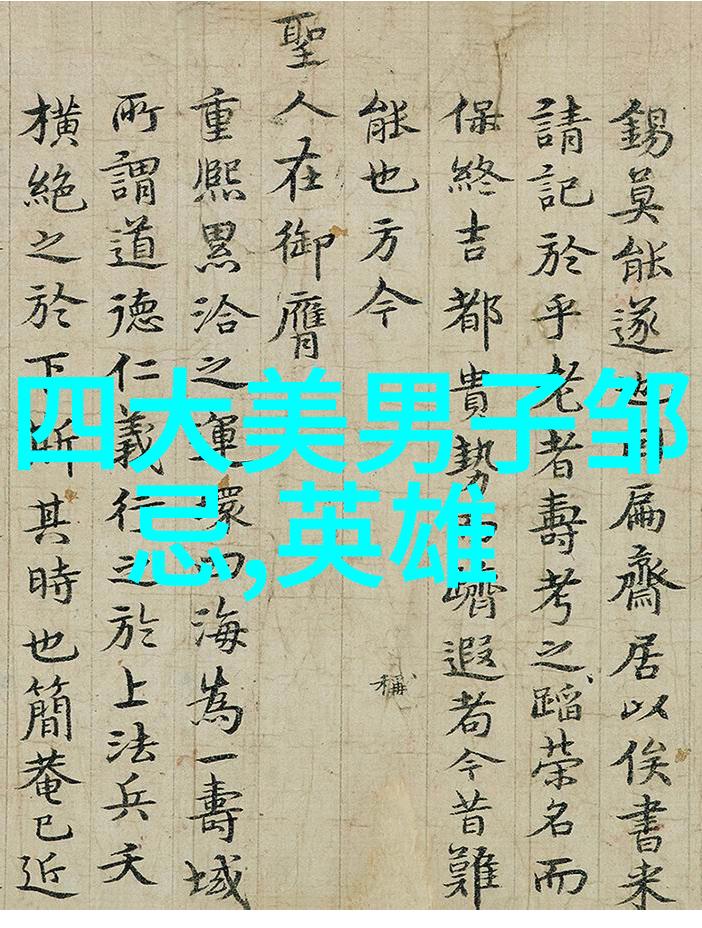 錫莫能遂也扁齋居以俟書来
請記於乎老者壽考之蹈榮名而
保終吉都貴勢而躋遐耇今昔難
能也方今
稱
聖人在御膺
重熈累洽之運環四海為一壽域
所謂道德仁義行之於上法兵夭
橫絶之於下斯其時也簡菴已近
四大美男子邹
忌,英雄